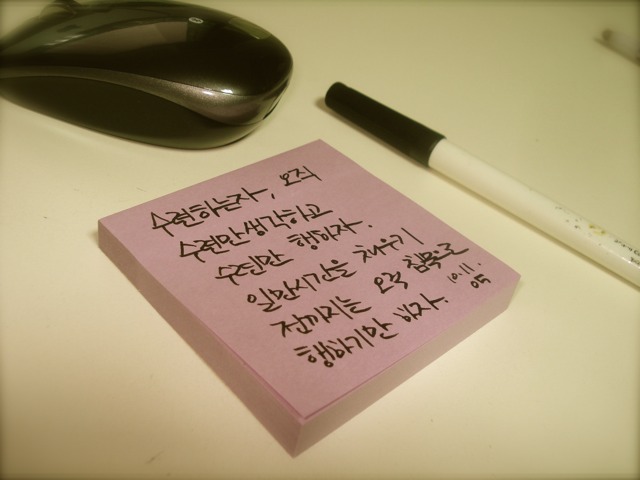 수련하는자, 오직
수련만생각하고
수련만 행하자.
일만시간을 채우기
전까지는 오직 침묵으로
행하기만 하자.
10.11.
05